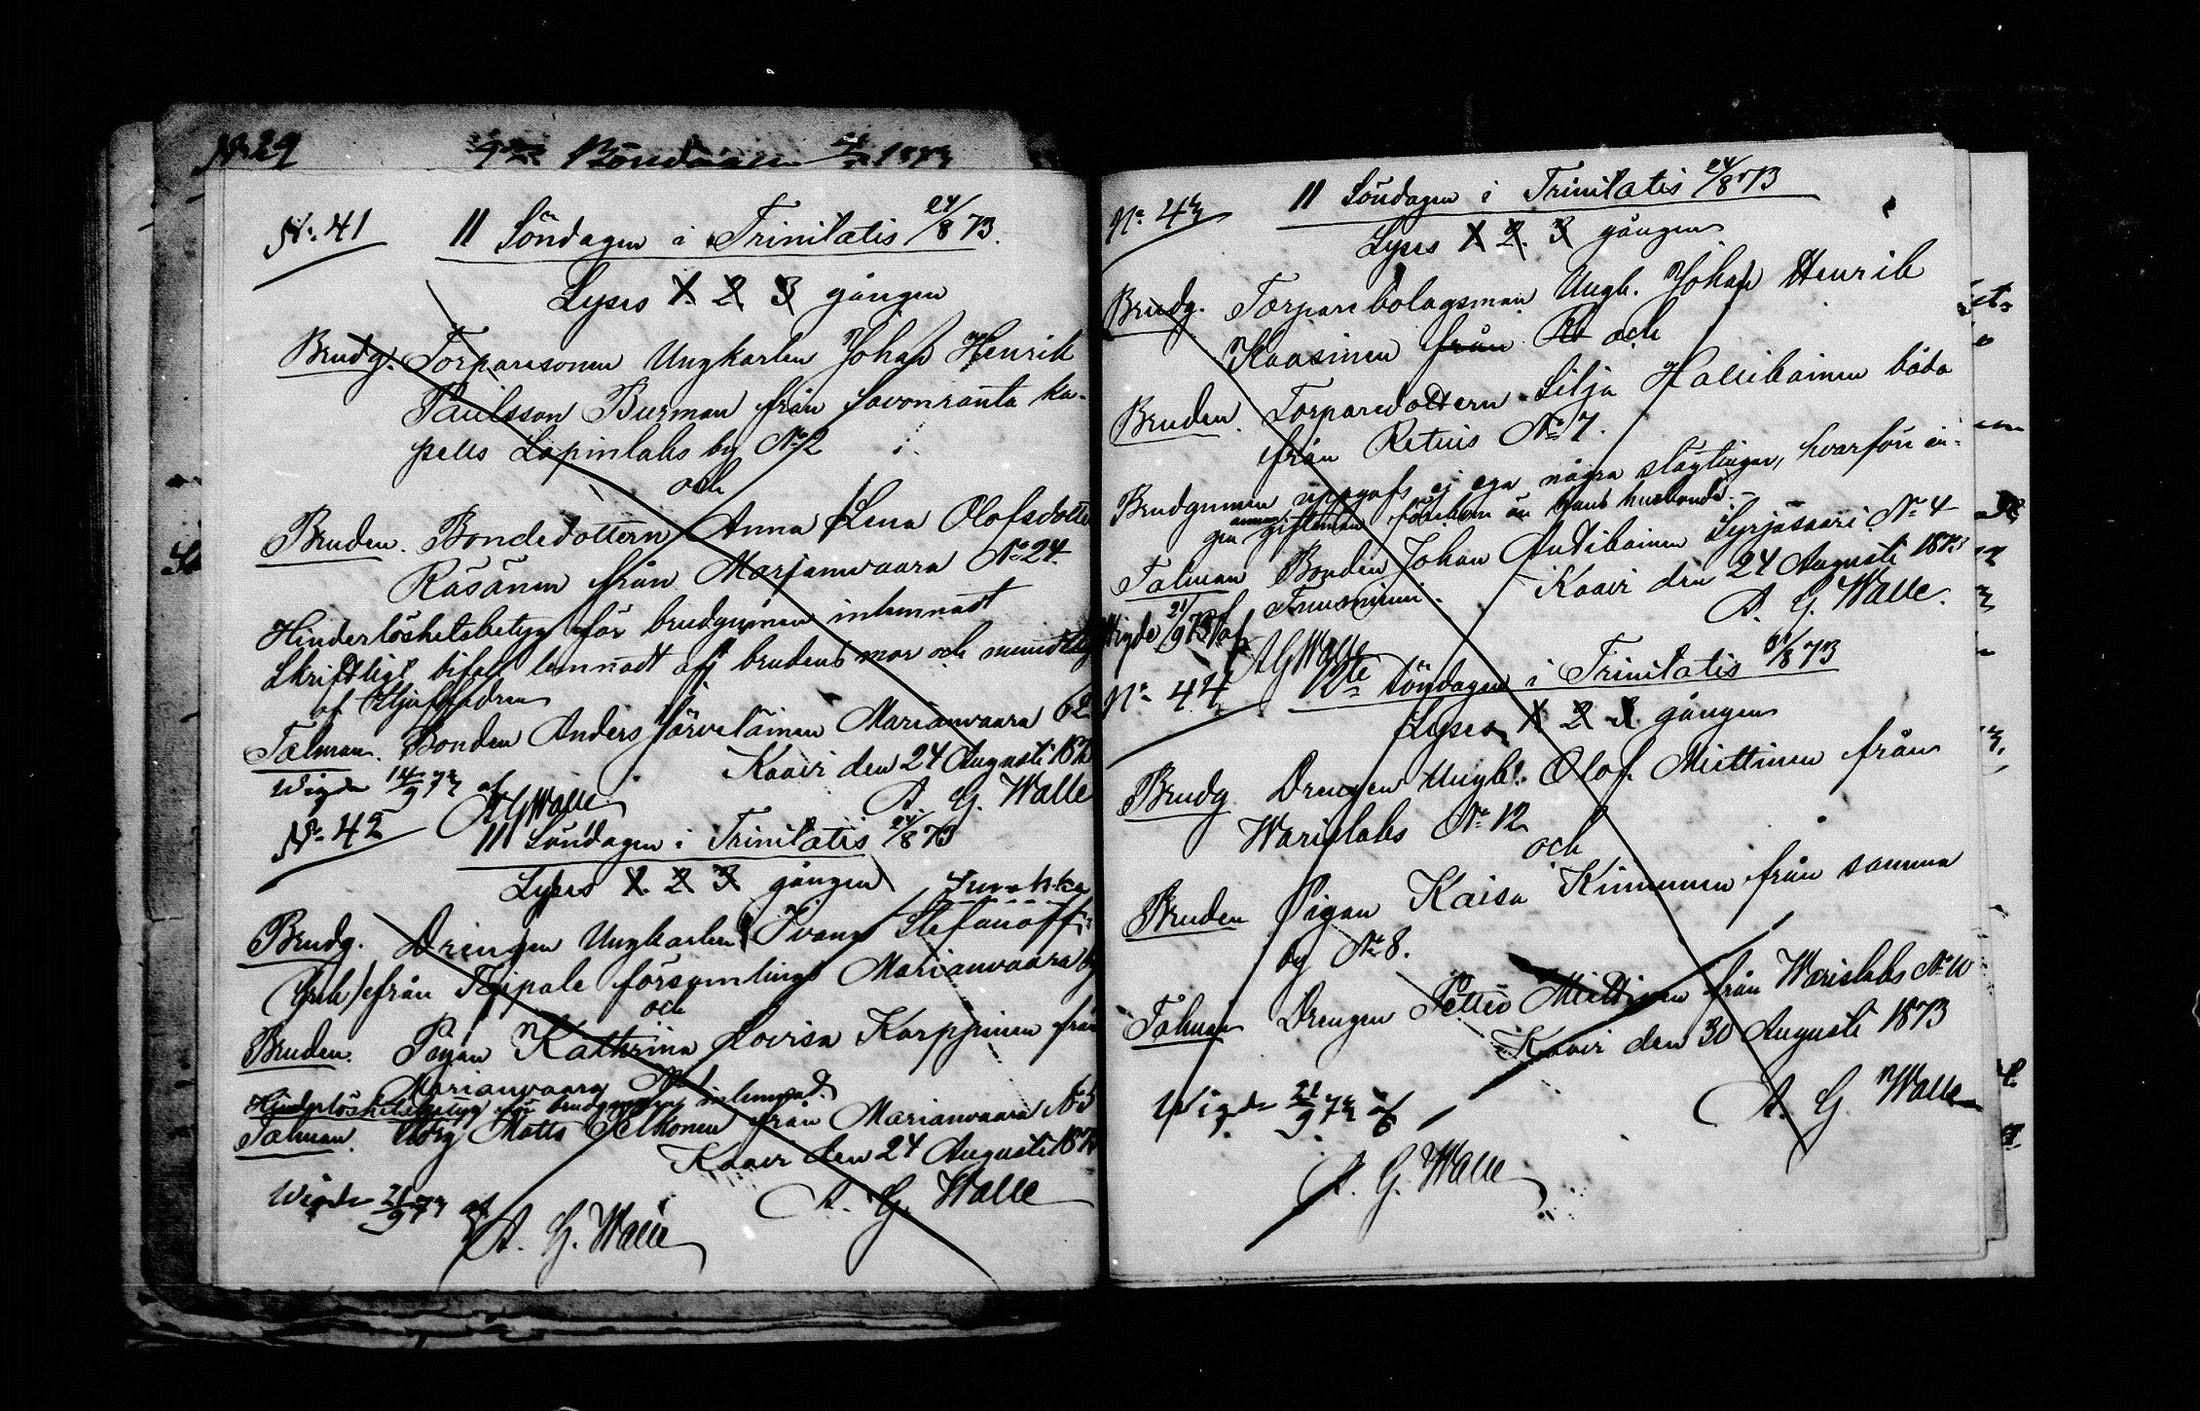 No 29 9de Böndagen 1873
No. 41 11 Söndagen i Trinitatis 24/8 73.
Lyses 1. 2. 3 gången
Brudg. Torparesonen Ungkarlen Johan Henrik
Paulsson Burman från Savonranta ka-
pells Lapinlaks by No 2
och
Bruden. Bondedottern Anna Lena Olofsdotter
Räsänen från Marjanvaara No 24.
Hinderlöshetsbetyg för brudgummen inlemnadt
Skriftligt bifall lemnadt af brudens mor och mundtlig
af Stjuffadren
Talman. Bonden Anders Järveläinen Marianvaara 62
Kaavi den 24 Augusti 1873
A. G. Walle
Wigde 14/9 73 af
A G Walle
No. 42 11 Söndagen i Trinitatis 24/8 73
Lyses 1. 2. 3 gången
Brudg. Drengen Ungkarlen Ivan Stefanoff
från Taipale församlings Marianvaara by
och
Bruden. Pigan Kathrina Lovisa Karppinen från
Marianvaara No 1
Hinderlöshetsbetyg för brudgummen inlemnad.
Talman. Matts Pelkonen från Marianvaara No 5
Kaavi den 24 Augusti 1873
A. G. Walle
Wigde 21/9 73 af
A. G. Walle
No. 43 11 Söndagen i Trinitatis 24/8 73
Lyses 1 2. 3 gången
Brudg. Torparebolagsman Ungk. Johan Henrik
Kaasinen från och
Bruden. Torparedottern Silja Hallikainen båda
från Retuis No 7.
Brudgummen uppgafs ej ega några slägtingar, hvarföre in-
gen annan giftoman förekom än hans husbonde.
Talman Bonden Johan Antikainen Syrjäsaari No 4
Tuusniemi. Kaavi den 24 Augusti 1873
A. G. Walle.
Wigde 21/9 73 af
A G Walle
No. 44 12te Söndagen i Trinitatis 31/8 73
Lyses 1 2 3 gången
Brudg Drengen Ungk. Olof Miettinen från
Warislaks No 12
och
Bruden Pigan Kaisa Kinnunen från samma
by No 8.
Talman Drengen Petter Miettinen från Warislaks No 10
Kaavi den 30 Augusti 1873
A. G. Walle
Wigde 21/9 73 af
A. G. Walle